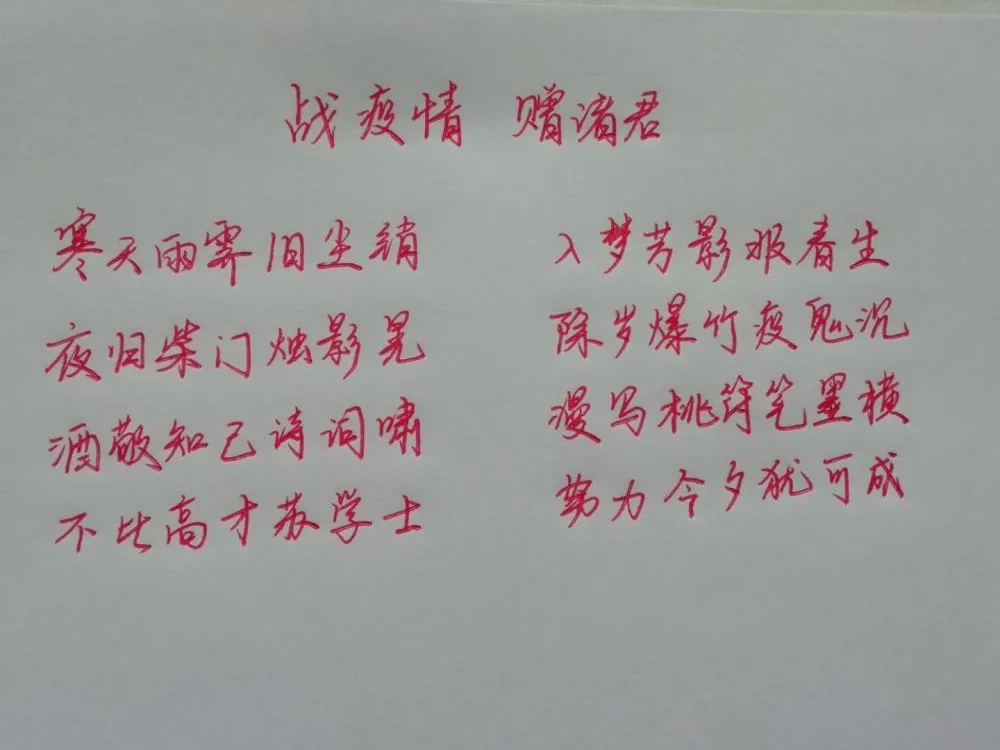 战疫情 赠诸君
寒天雨霁旧尘销 入梦芳影报春生
夜归柴门烛影晃 除岁爆竹疫鬼沉
酒敬知己诗词啸 漫写桃符笔墨横
不比高才苏学士 努力今夕犹可成